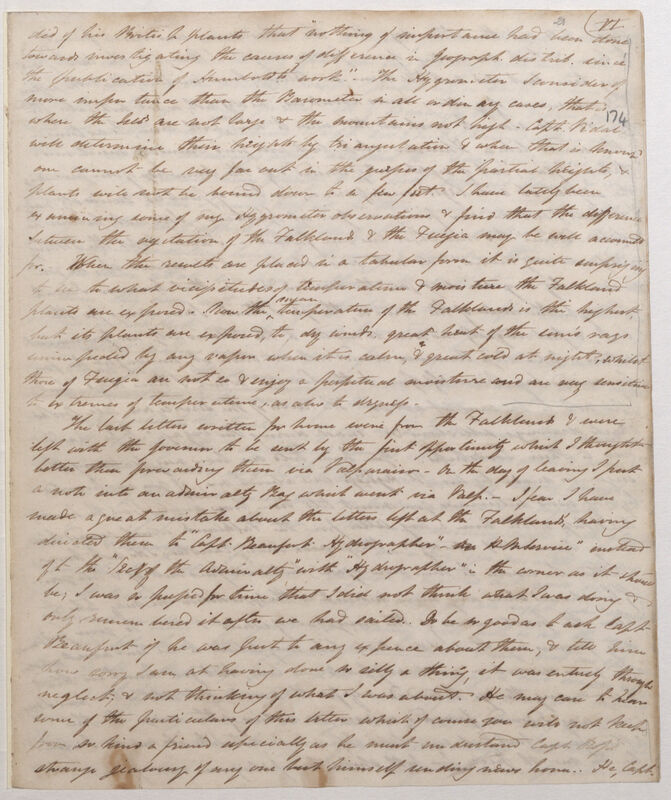 21 VI
did of his British plants that "nothing of importance had been done
towards investigating the causes of difference in Geograph. distrib. since
the publication of Humboldts work". The Hygrometer I consider of
more importance than the Barometer in all ordinary cases, that is
174
where the Islds are not large & the mountains not high. Capt. Vidal
will determine their heights by triangulation & when that is known
one cannot be very far out in the guesses of the partial heights, &
plants will not be bound down to a few feet. I have lately been
examining some of my Hygrometer observations & find that the difference
between the vegetation of the Falklands & the Fuegia may be well accounted
for. When the results are placed in a tabular form it is quite surprising
to see to what vicissitudes of temperature & moisture the Falkland
plants are exposed. Now the mean temperature of the Falklands is the highest,
but its plants are exposed, to dry winds, great heat of the sun's rays
unimpeded by any vapor when it is calm, & great cold at night, whilst
those of Fuegia are not so & enjoy a perpetual moisture and are very sensitive
to extremes of temperature, as also to dryness.
The last letters written for home were from the Falklands & were
left with the Governor to be sent by the first opportunity which I thought
better than forwarding them via Valparaiso – On the day of leaving I put
a note into an admiralty Bag which went via Valp. – I fear I have
made a great mistake about the letters left at the Falklands, having
directed them to "Capt. Beaufort Hydrographer" – "on H.M. service" instead
of to the "Secy of the Admiralty" with "Hydrographer" in the corner as it should
be; I was so pressed for time that I did not think what I was doing &
only remembered it after we had sailed. Do be so good as to ask Capt
Beaufort if he was put to any expence about them, & tell him
how sorry I am at having done so silly a thing, it was entirely through
neglect, & not thinking of what I was about. He may care to hear
some of the particulars of this letter which of course you will not keep
from so kind a friend especially as he must understand Capt. Ross'
strange jealousy of any one but himself sending news home.. He, Capt.